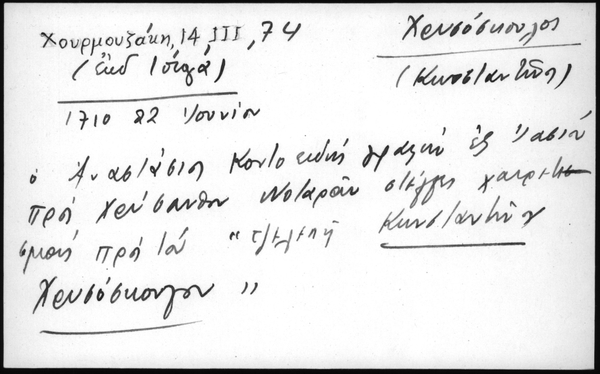 Χουρμουζάκη, 14, III, 74
Χρυσόσκουλος
(ἐκδ
(Κωνσταντῖνος)
1710 22 Ἰουνίου
ὁ Ἀναστάσιος Κοντοειδής γράφει ἐξ Ἰασίου
πρός Χρύσανθον Νοταρᾶν στέλλει χαιρετι-
σμούς πρός τόν "
Κωνσταντῖνον
Χρυσόσκουλον "